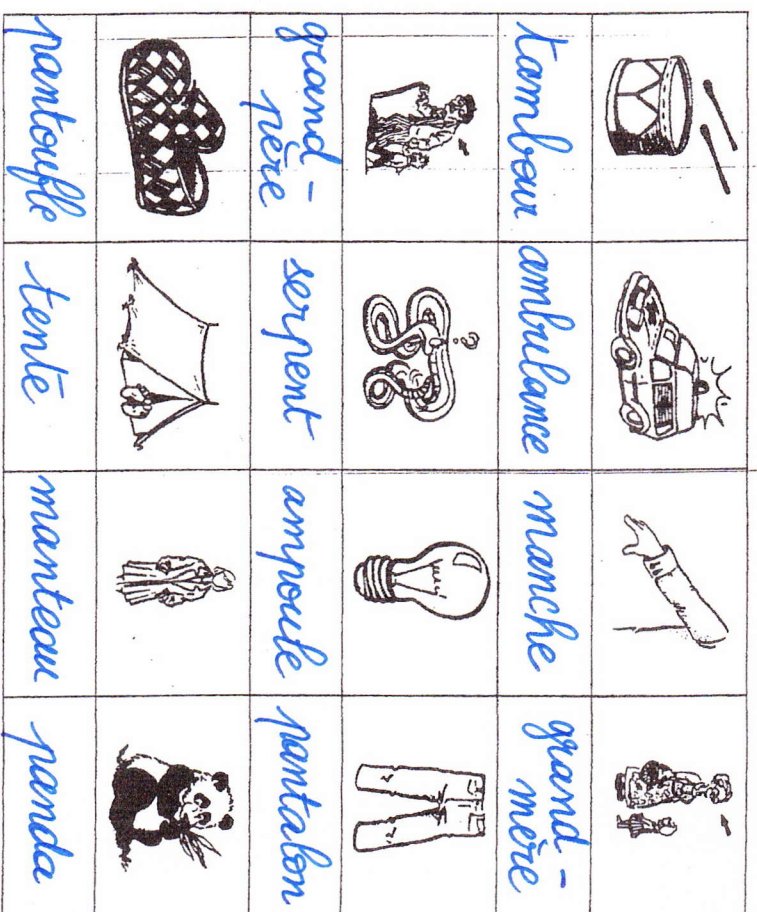 tambour ambulance manche grand-
mère
grand-
père serpent ampoule pantalon
pantoufle tente manteau panda